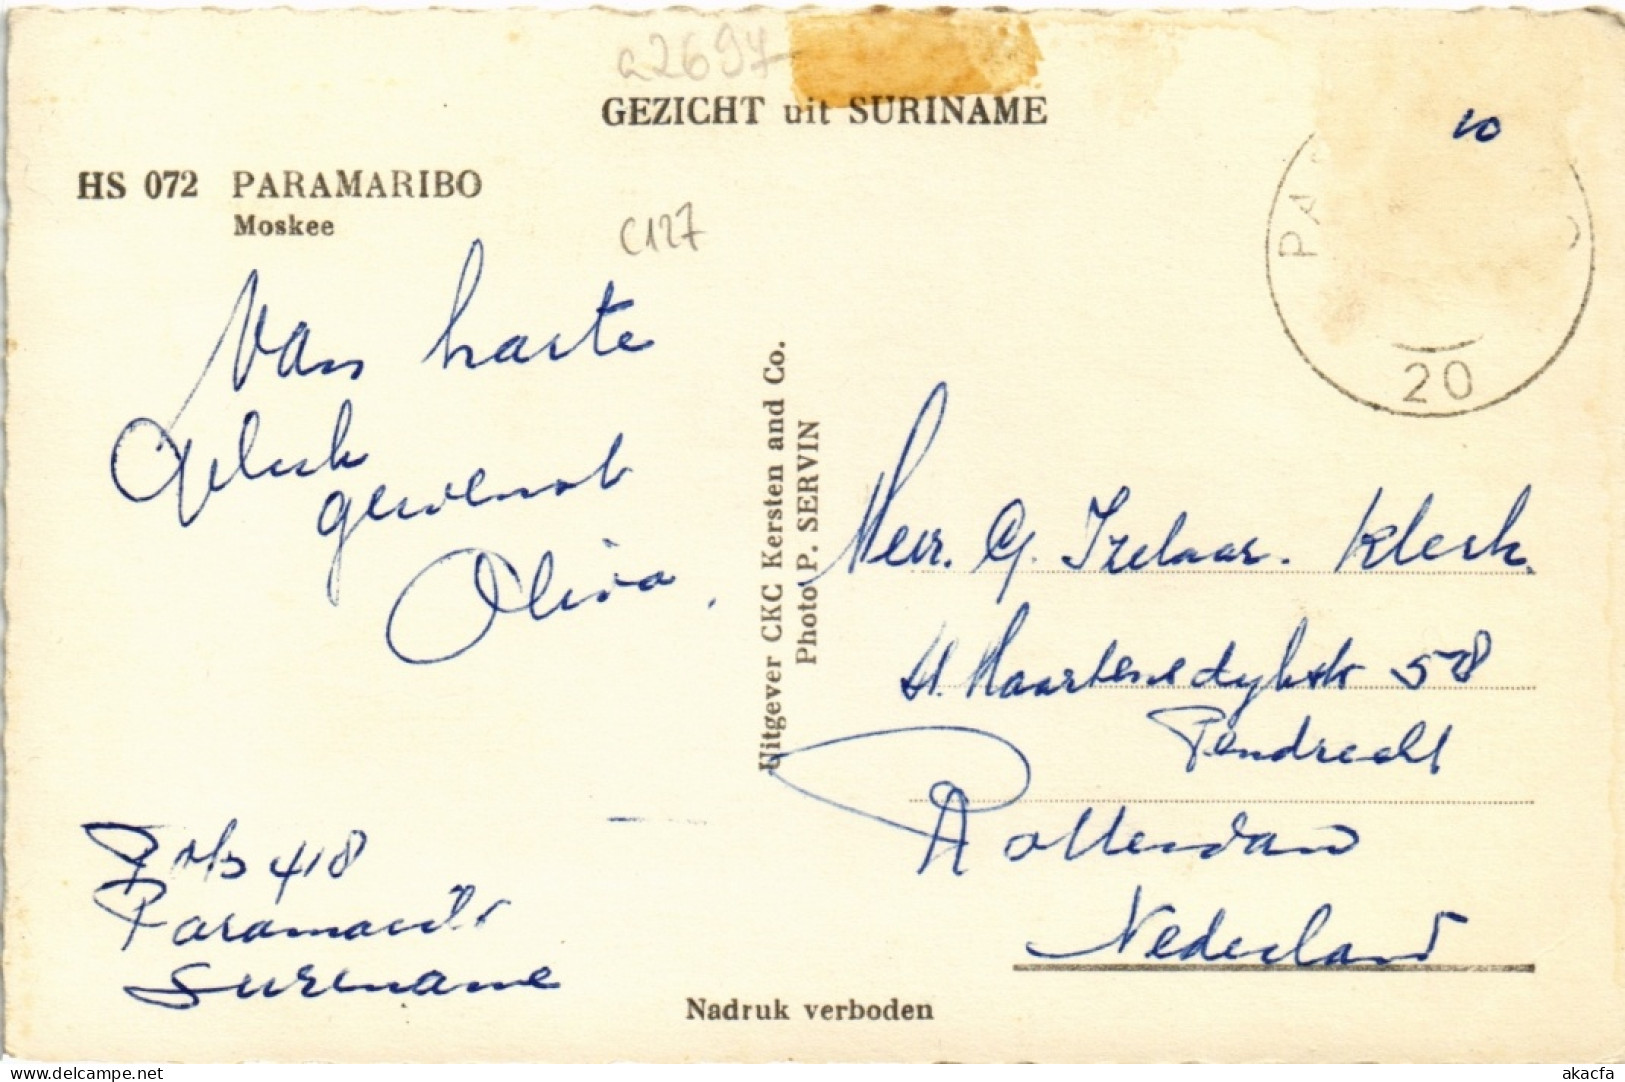 a2697
GEZICHT uit SURINAME
10
HS 072 PARAMARIBO
Moskee
C127
PA
O
20
Van harte
Geluk
gewenst
Oliva.
Uitgever CKC Kersten and Co.
Photo P. SERVIN
Meur. G. Izelaar. Klerk
St. Maartensedijkstr 578
Pendrecht
Rotterdam
Nederland
Pob 418
Paramaribo
Suriname
Nadruk verboden
delcampe.net
akacfa